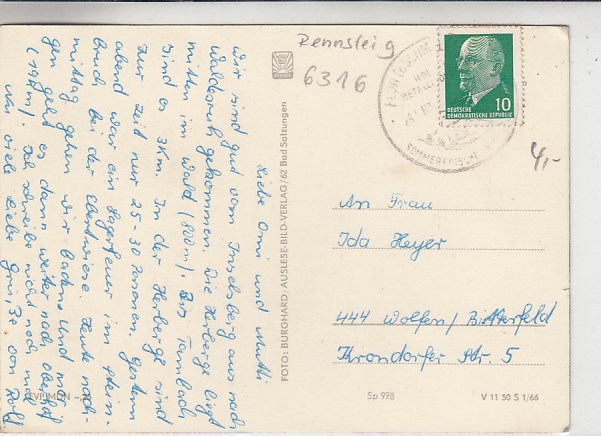 Rennsteig
6316
Liebe Omi und Mutti
Wir sind gut vom Inselsberg aus nach
gekommen. Die Herberge liegt
mitten im Wald (800m). Bis Tambach
sind es 3km. In der Herberge sind
zur Zeit nur 25-30 Personen. Gestern
abend war ein Lagerfeuer im Stein-
bruch bei der Ebertwiese. Heute nach-
mittag gehen wir baden und mor-
gen geht es dann weiter nach Oberhof
(19km) Ich schreibe nocht noch mal
nun viele liebe Grüße von Rolf
FOTO: BURGHARD / AUSLESE-BILD-VERLAG / 62 Bad Salzungen
SOMMERFRISCHE
10
DEUTSCHE
DEMOKRATISCHE REPUBLIK
4,-
An Frau
Ida Heyer
444 Wolfen/Bitterfeld
Krondorfer Str. 5
Sp 978
V 11 50 S 1/66